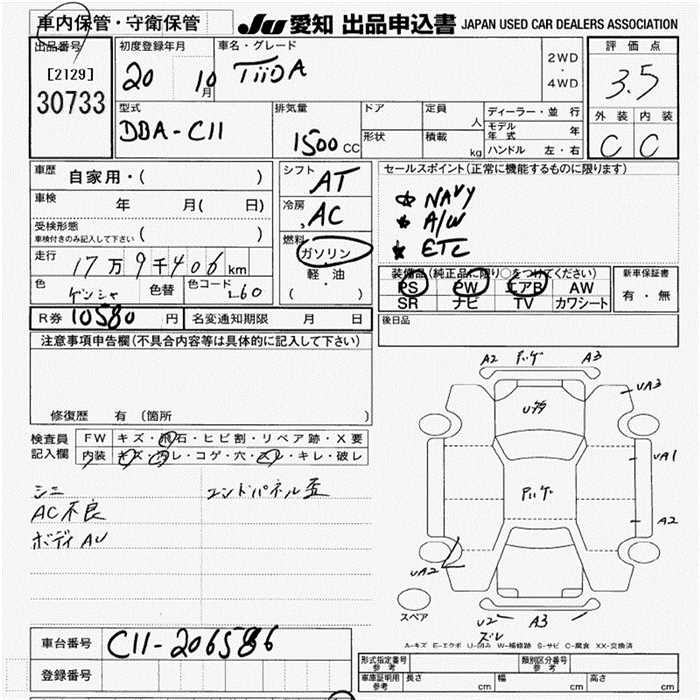 車内保管・守衛保管
JU 愛知 出品申込書 JAPAN USED CAR DEALERS ASSOCIATION
出品番号
[2129]
30733
初度登録年月
20 10月
車名・グレード
TiiDA
2WD
・
4WD
評価点
3.5
外装 内装
C C
型式
DBA-C11
排気量
1500cc
ドア
定員 人
形状
積載 kg
ディーラー・並行
モデル年式 年
ハンドル 左・右
車歴
自家用・( )
車検 年 月( 日)
受検形態
車検付きのみ記入して下さい ( )
走行
17万9千406km
色
色替
色コード
L60
シフト
AT
冷房
AC
燃料
ガソリン
軽・油
( ・ )
セールスポイント(正常に機能するものに限ります)
NAVY
A/W
ETC
装備品(純正品に限り○をつけてください)
PS PW エアB AW
SR ナビ TV カワシート
新車保証書
有・無
R券 10580円
名変通知期限 月 日
後日品
注意事項申告欄(不具合内容等は具体的に記入して下さい)
修復歴 有(箇所 )
検査員記入欄
FW キズ・飛石・ヒビ割・リペア跡・X要
内装 キズ・汚レ・コゲ・穴・スレ・キレ・破レ
シミ
AC不良
ボディAU
エンドパネル歪
A2 A3
UA3
UA1
A2
UA2
U2 A3
スペア
A-キズ E-エクボ U-凹み W-補修跡 S-サビ C-腐食 XX-交換済
車台番号
C11-206586
登録番号
型式指定番号 参考
類別区分番号 参考
車庫証明用 参考
長さ cm
幅 cm
高さ cm